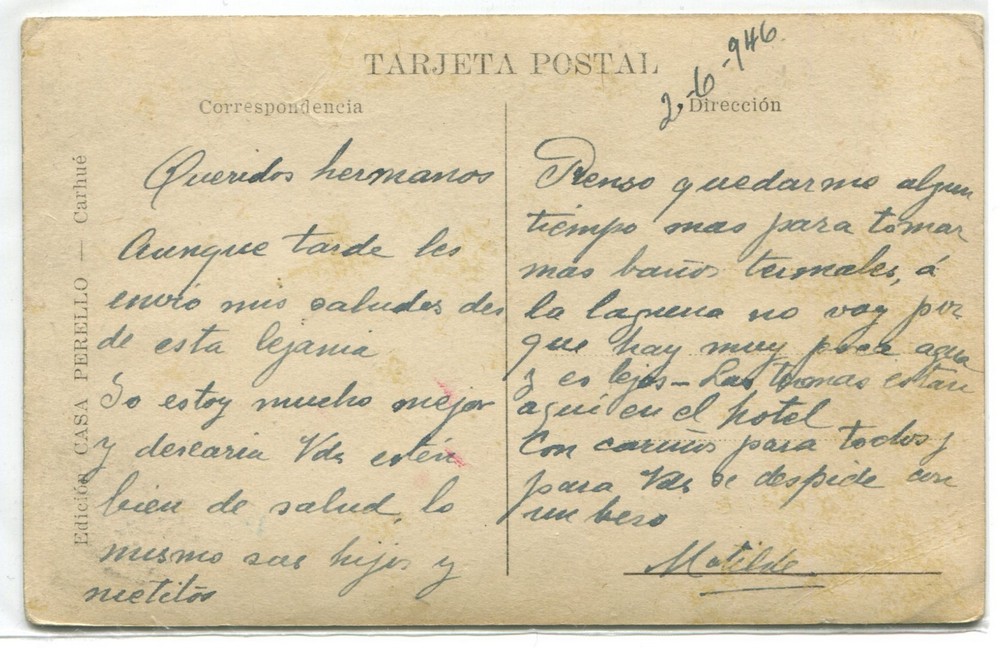 TARJETA POSTAL
2,-6-946.
Correspondencia
Dirección
Edición CASA PERELLO — Carhué
Queridos hermanos
Aunque tarde les
envió mis saludes des
de esta lejania
Yo estoy mucho mejor
y desearia Vds estén
bien de salud, lo
mismo sus hijos y
nietitos
Pienso quedarme algun
tiempo mas para tomar
mas baños termales, á
la laguna no voy por
que hay muy poca agua
y es lejos — Las termas están
aquí en el hotel
Con cariños para todos y
para Vds se despide con
un beso
Matilde